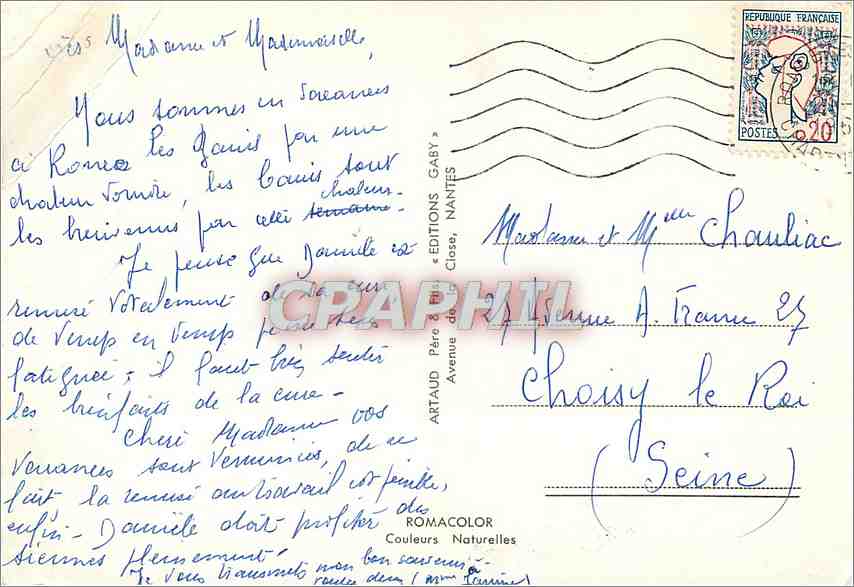 Madame et Mademoiselle,
Nous sommes en vacances
à Rome les par une
chaleur torride, les bains sont
chaleur-
les bienvenus par cette semaine-
Je pense que Danièle est
remise totalement de sa cure
de temps en temps
fatiguée; il faut bien sentir
les bienfaits de la cure-
Chère Madame vos
vacances sont terminées, de ce
fait la remise au travail est pénible,
enfin- Danièle doit profiter des
siennes pleinement!
Je vous transmets mon bon souvenir
REPUBLIQUE FRANÇAISE
POSTES 0,20
ARTAUD Père & Fils, « EDITIONS GABY »
Avenue de la Close, NANTES
Madame et Melle Chauliac
27 Avenue A. France 27
Choisy le Roi
(Seine)
ROMACOLOR
Couleurs Naturelles
CPAPHIL